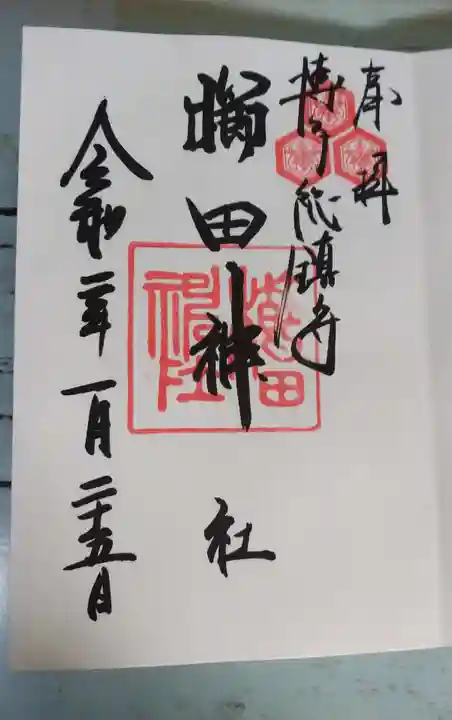 奉拝
博多総鎮守
櫛田神社
櫛田
神社
令和二年一月二十五日